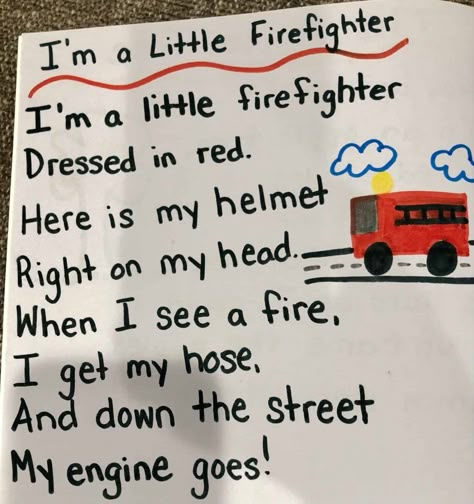 I'm a Little Firefighter
I'm a little firefighter
Dressed in red.
Here is my helmet
Right on my head.
When I see a fire,
I get my hose,
And down the street
My engine goes!